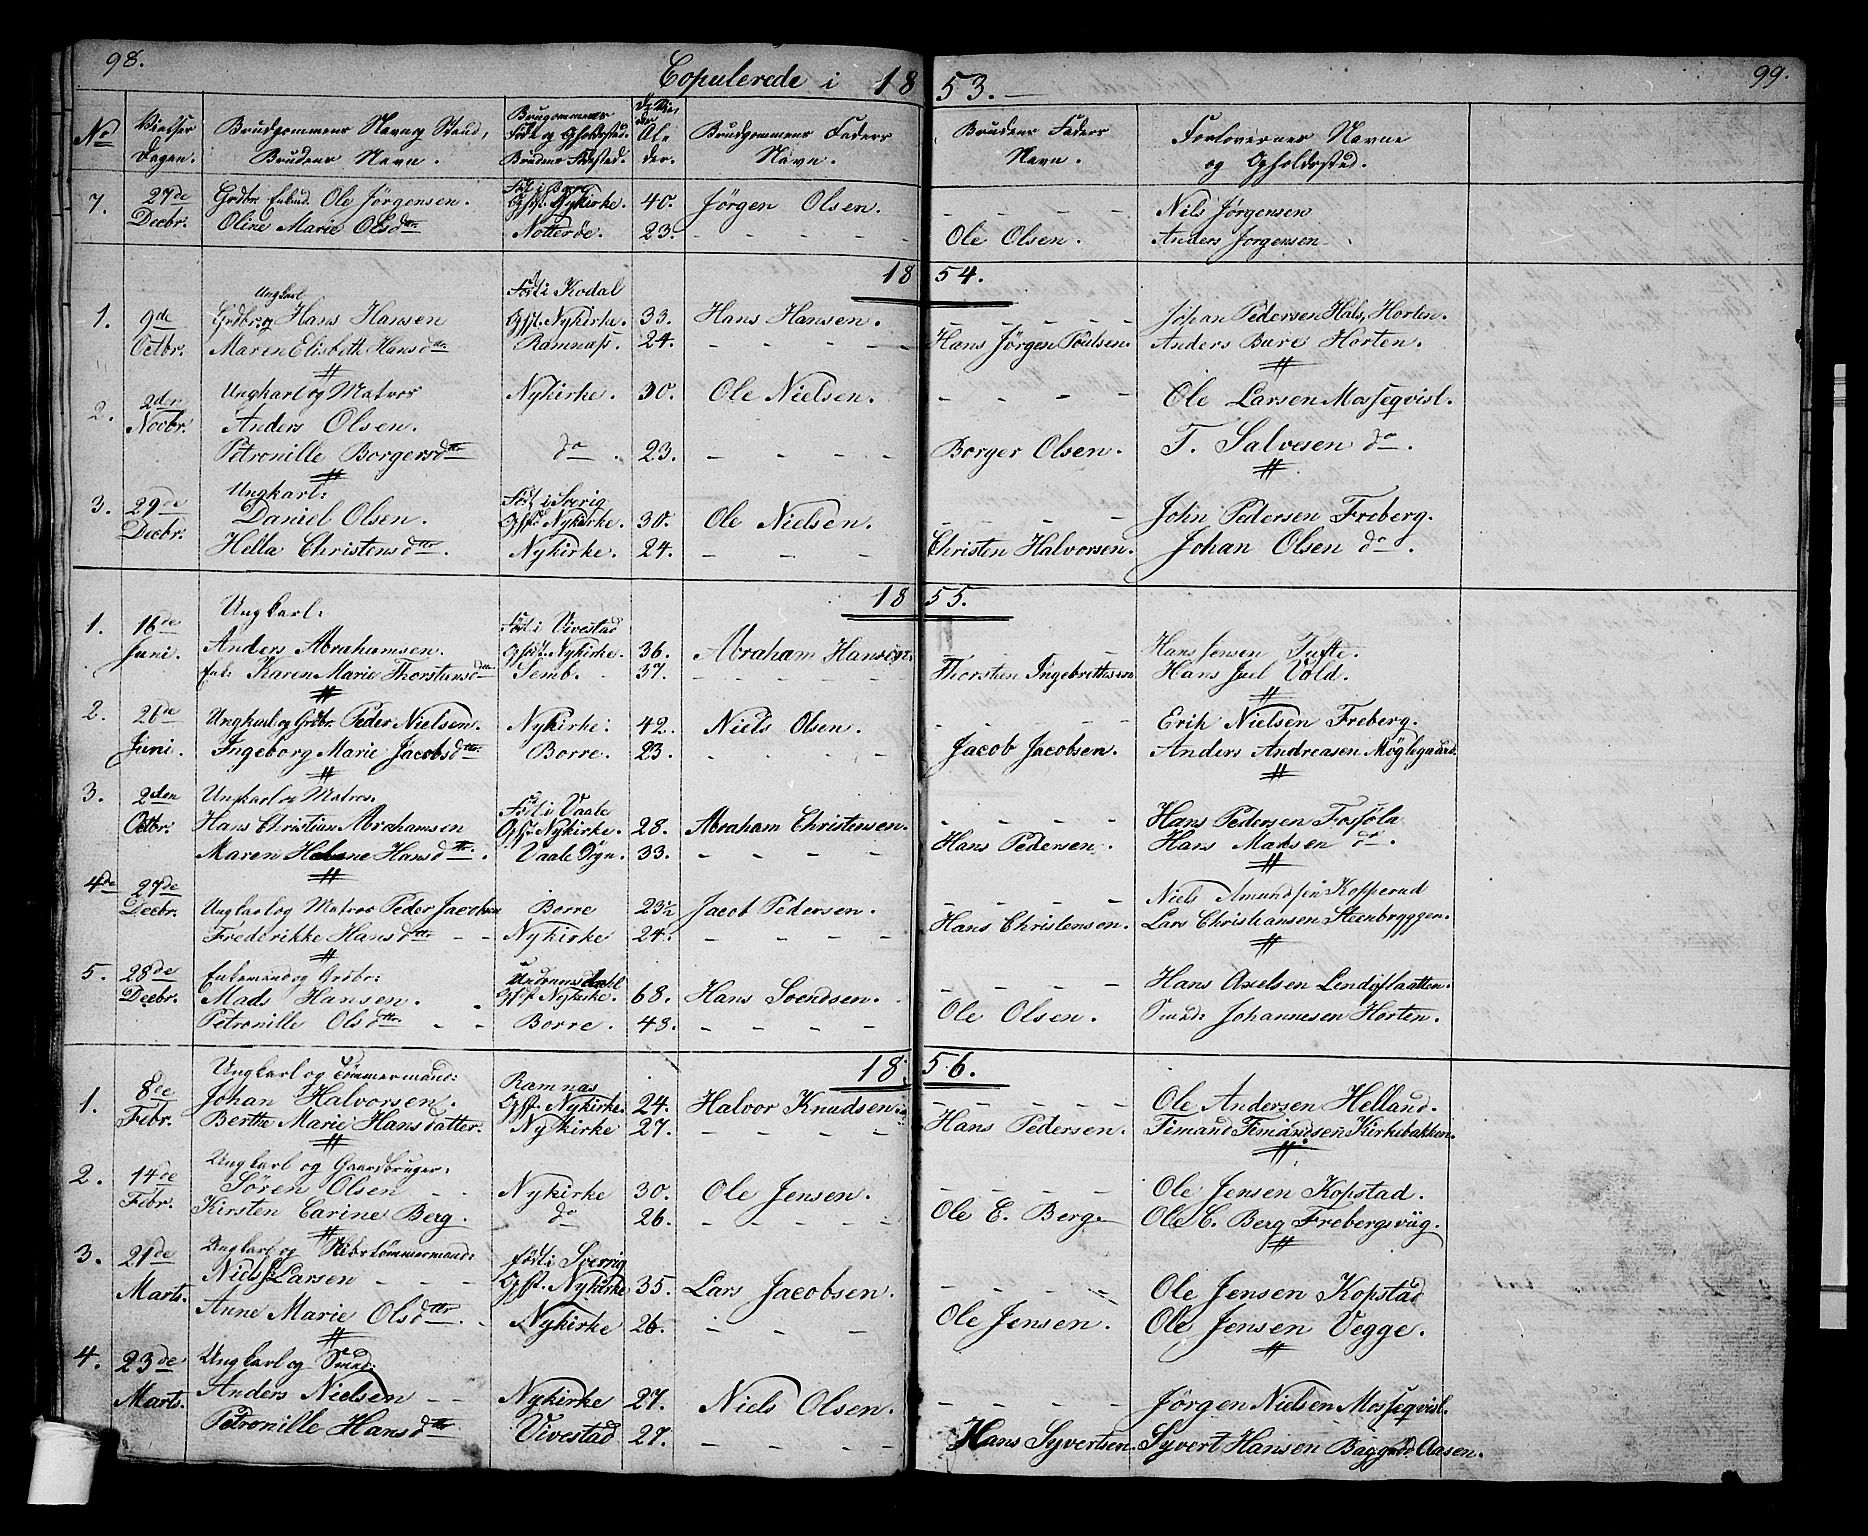 98.
Copulerede i 1853.
99.
No
Vielses Dagen.
Brudgommens Navn og Stand,
Brudens Navn.
Brugommens Føde og Opholdssted.
Brudens Fødested.
Alder.
Brudgommens Faders Navn.
Brudens Faders Navn.
Forlovernes Navne
og Opholdssted.
7. 27de Decbr. Grdbr. Enkmd. Ole Jörgensen. Föd i Borre Ophst. Nykirke. 40. Jörgen Olsen. - - - - Nils Jörgensen
Oline Marie Olsdtr Nötteröe. 23. - - - - Ole Olsen. Anders Jorgensen
1854.
1. 9de Octbr. Ungkarl Grdbr. og Hans Hansen Föd i Kodal Ophst. Nykirke. 33. Hans Hansen. - - - - Johan Pedersen Hals, Horten.
Maren Elisbeth Hansdtr Ramnass. 24. - - - - Hans Jörgen Poulsen. Anders Bure Horten.
2. 2den Novbr. Ungkarl og Matros
Anders Olsen. Nykirke. 30. Ole Nielsen. - - - - Ole Larsen Mosseqvist.
Petronille Borgersdtr do. 23. - - - - Borger Olsen. T. Salvesen do.
3. 29de Decbr. Ungkarl:
Daniel Olsen. Föst i Sverig Ophst Nykirke. 30. Ole Nielsen. - - - John Pedersen Freberg.
Hella Christensdtr. Nykirke. 24. - - - Christen Halvorsen. Johan Olsen do.
1855.
1. 16de Juni. Ungkarl:
Anders Abrahamsen. Föst i Vivestad Ophst. Nykirke. 36. Abraham Hansen. - - - - Hans Jensen Tufte.
Karen Marie Thorstensdtr Semb. 37. - - - - Thorsten Ingebrettsen Hans Juel Vold.
2. 26de Juni. Ungkarl og Grdbr. Peder Nielsen. Nykirke: 42. Niels Olsen. - - - - Erik Nielsen Freberg.
Ingeborg Marie Jacobsdtr. Borre. 23. - - - - Jacob Jacobsen. Anders Andreasen Möglegaard.
3. 2den Octbr. Ungkarl og Matros.
Hans Christian Abrahamsen Föst i Vaale Ophst Nykirke. 28. Abraham Christensen. - - - - Hans Pedersen Fossöla
Maren Helene Hansdtr. Vaale Sogn. 33. - - - - Hans Pedersen. Hans Madsen do.
4de 27de Decbr. Ungkarl og Matros Peder Jacobsen Borre 23½ Jacob Pedersen. - - - - Niels Amundsen Kopperud
Frederikke Hansdtr - - Nykirke 24. - - - - Hans Christensen. Lars Christiansen Steenbryggen.
5. 28de Decbr. Enkemand og Grdbr:
Mads Hansen. Ophst Nykirke. 68. Hans Svendsen. - - - - Hans Axelsen
Petronille Olsdtr - - Borre. 43. - - - - Ole Olsen. Smed: Johannesen Horten.
1856.
1. 8de Febr. Ungkarl og Tömmermand:
Johan Halvorsen. Ramnas Ophst. Nykirke. 24. Halvor Knudsen. - - - - Ole Andersen Helland.
Berthe Marie Hansdatter. Nykirke 27. - - - - Hans Pedersen. Timand Timandsen Kirkebakken.
2. 14de Febr. Ungkarl og Gaardbruger:
Sören Olsen Nykirke 30. Ole Jensen. - - - - Ole Jensen Kopstad.
Kirsten Carine Berg. do 26. - - - - Ole E. Berg Ole C. Berg Frebergsvüg.
3. 21de Marts. Ungkarl og Skibstömmermand:
Niels Larsen - - - Föst i Sverrig Ophst. Nykirke 35. Lars Jacobsen. - - - - Ole Jensen Kopstad
Anne Marie Olsdtr. Nykirke 26. - - - Ole Jensen. Ole Jensen Vegge.
4. 23de Marts. Ungkarl og Smed:
Anders Nielsen - - Nykirke 27. Niels Olsen. - - - - Jörgen Nielsen Mosseqvist.
Petronille Hansdtr Vivestad 27. - - - - Hans Syvertsen. Syvert Hansen Aasen.